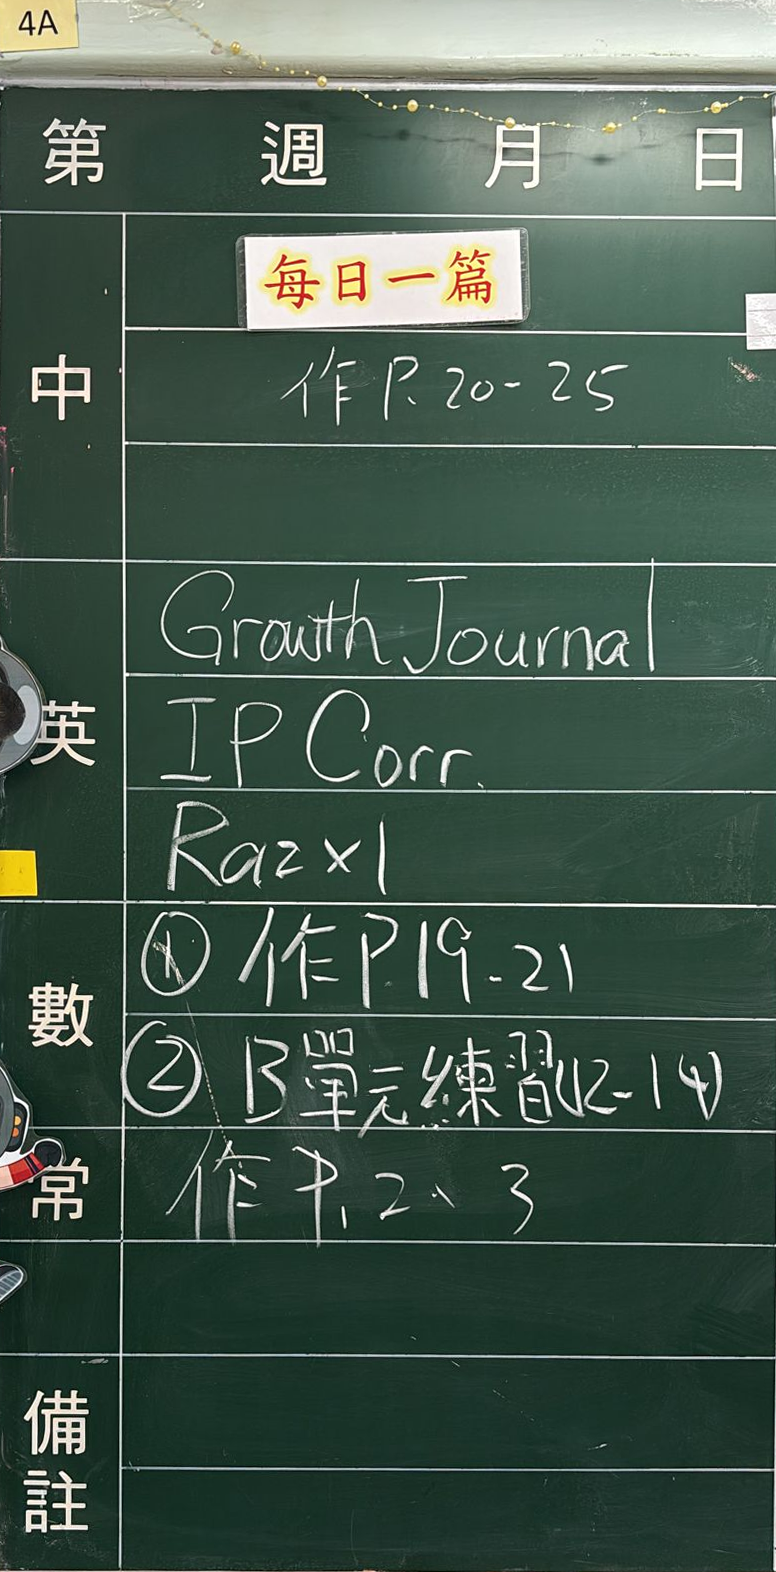 4A
第 週 月 日
中
每日一篇
作 P. 20-25
英
Growth Journal
IP Corr.
Raz x 1
數
① 作 P.19-21
② B單元練習(12-14)
常
作 P. 2、3
備註